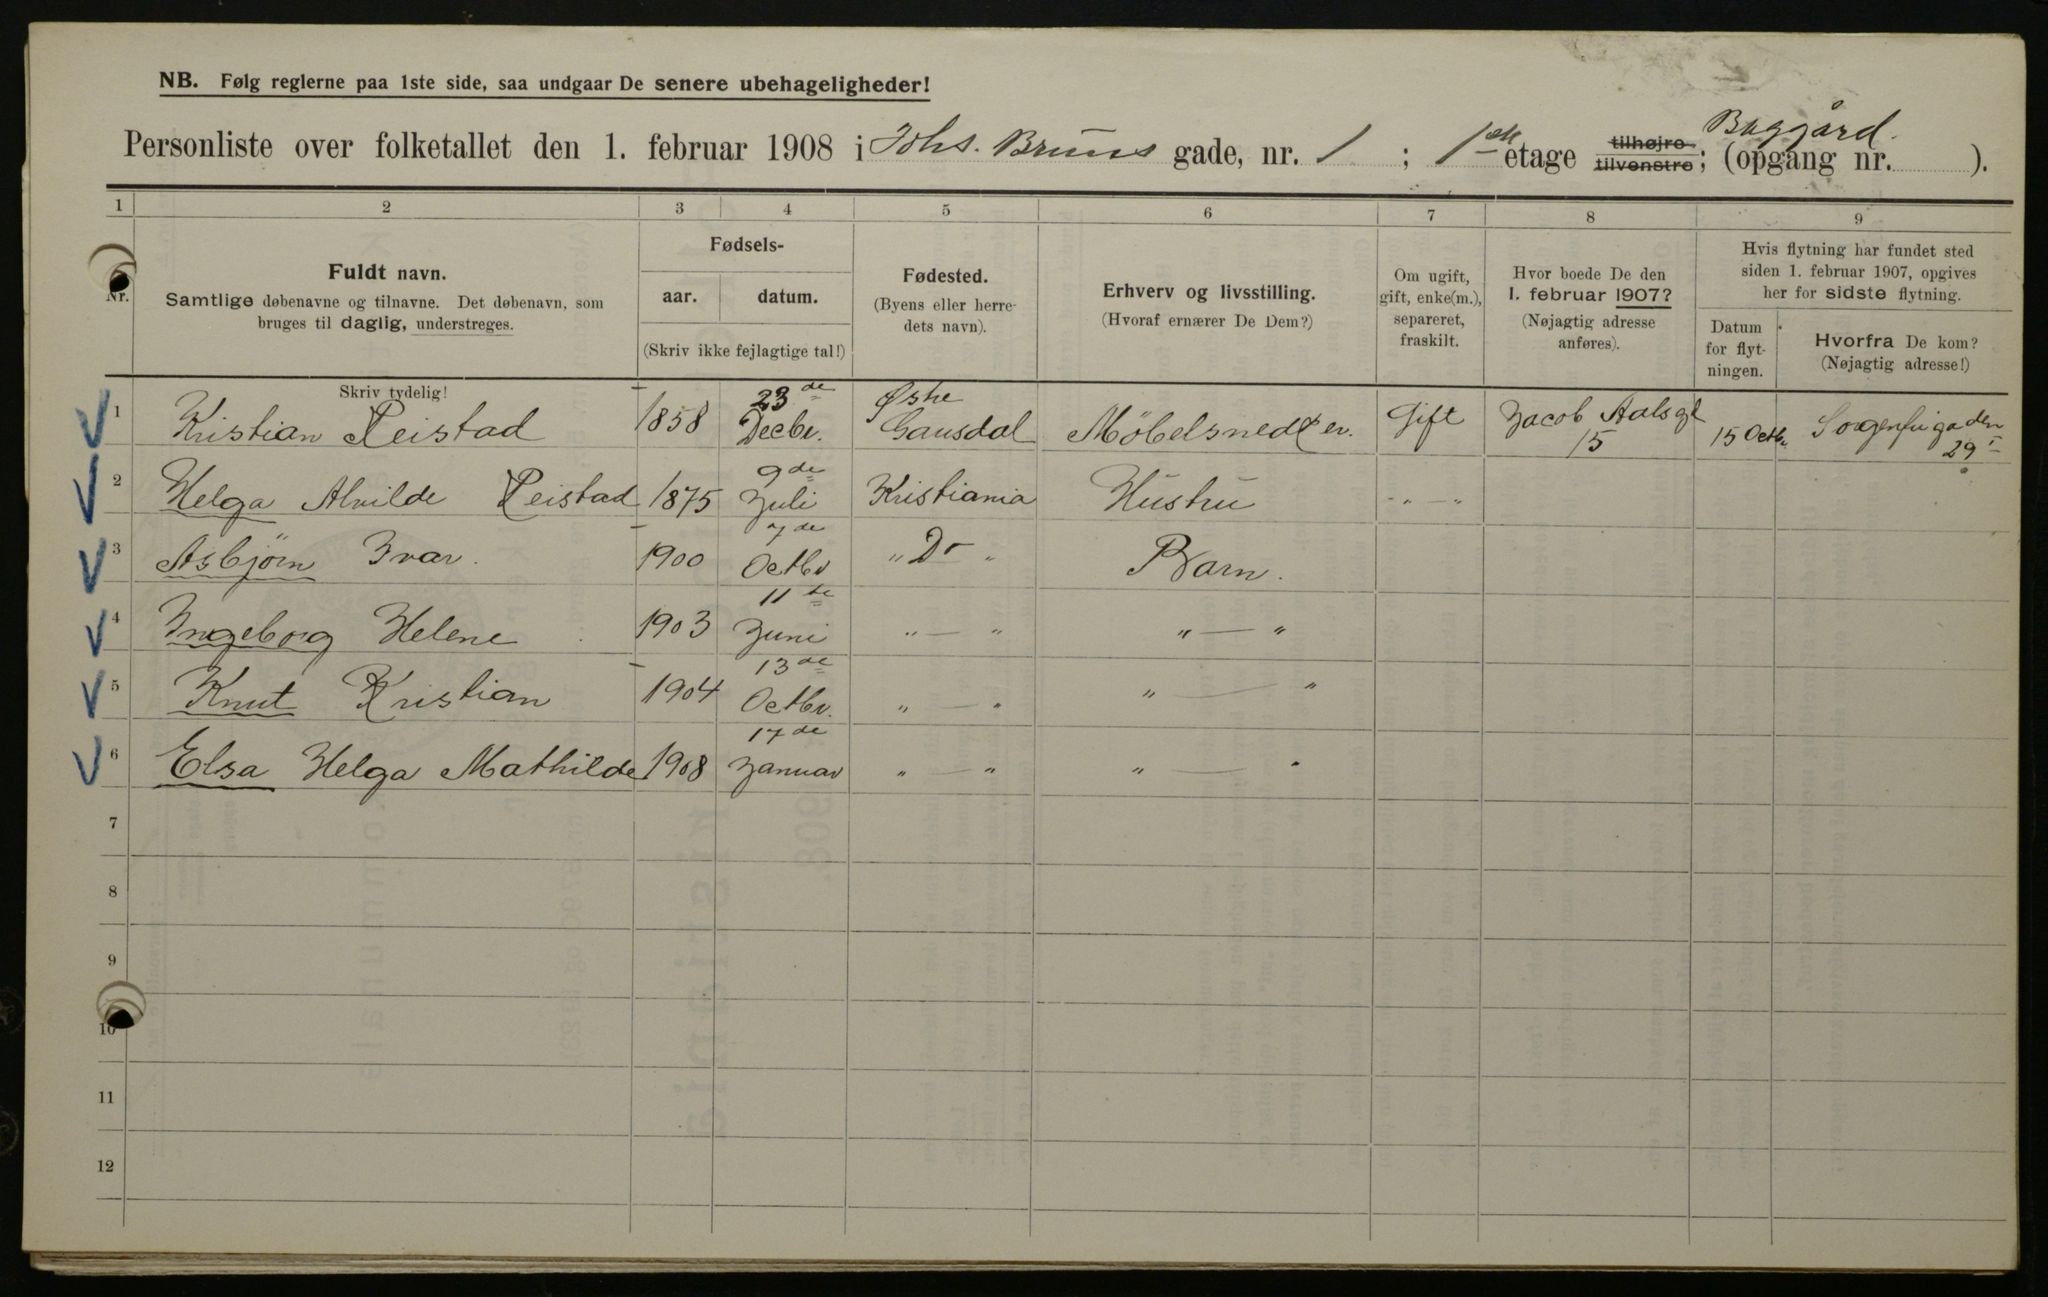 NB. Følg reglerne paa 1ste side, saa undgaar De senere ubehageligheder!
Baggård.
Personliste over folketallet den 1. februar 1908 i Johs. Bruns gade, nr. 1 ; 1ste etage tilhøjre tilvenstre; (opgang nr. ).
1 2 3 4 5 6 7 8 9
Nr.
Fuldt navn.
Samtlige døbenavne og tilnavne. Det døbenavn, som
bruges til daglig, understreges.
Skriv tydelig!
Fødsels-
aar. datum.
(Skriv ikke fejlagtige tal!)
Fødested.
(Byens eller herre-
dets navn).
Erhverv og livsstilling.
(Hvoraf ernærer De Dem?)
Om ugift,
gift, enke(m.),
separeret,
fraskilt.
Hvor boede De den
1. februar 1907?
(Nøjagtig adresse
anføres).
Hvis flytning har fundet sted
siden 1. februar 1907, opgives
her for sidste flytning.
Datum
for flyt-
ningen.
Hvorfra De kom?
(Nøjagtig adresse!)
1 Kristian Reistad 1858 23de Decbr. Østre Gausdal Möbelsnedker. Gift Jacob Aalsgt 15 15 Octbr Sorgenfrigaden 29 I
2 Helga Alvilde Reistad 1875 9de Juli Kristiania Hustru " — "
3 Asbjørn Ivar. 1900 7de Octbr " Do " Barn.
4 Ingeborg Helene 1903 11te Juni " — " " — "
5 Knut Kristian 1904 13de Octbr. " — " " — "
6 Elsa Helga Mathilde 1908 17de Januar " — " " — "
7
8
9
10
11
12